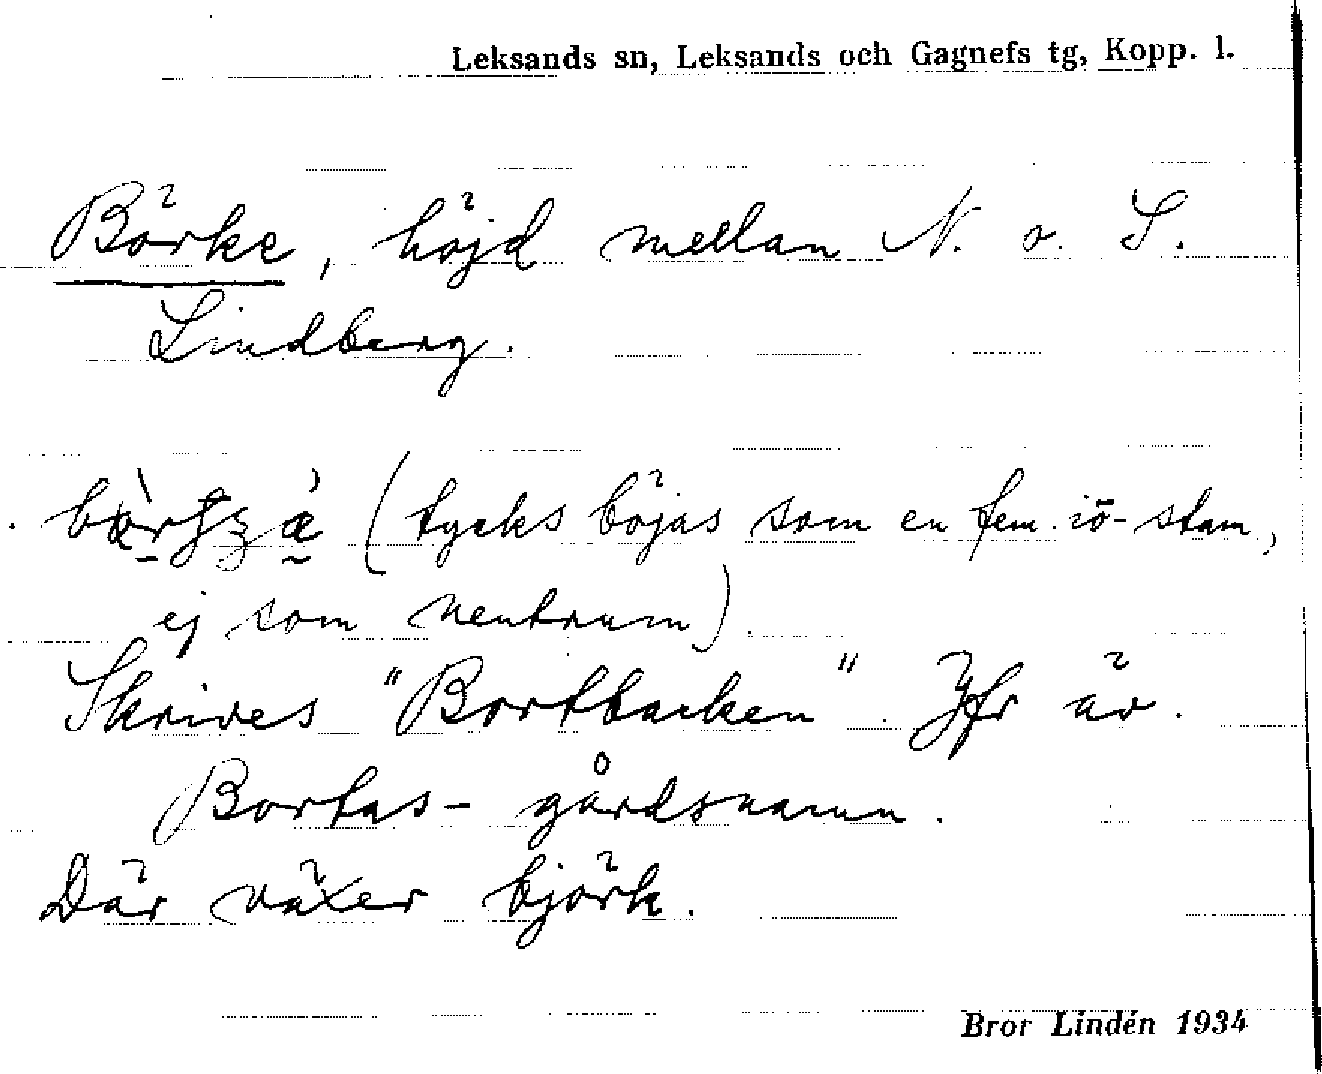 Leksands sn, Leksands och Gagnefs tg, Kopp. l.
Börke, höjd mellan N. o. S.
Lindberg.
(tycks böjas som en fem. iō-stam,
ej som neutrum).
Skrives "Bortbacken". Jfr äv.
Bortas- gårdsnamn.
Där växer björk.
Bror Lindén 1934